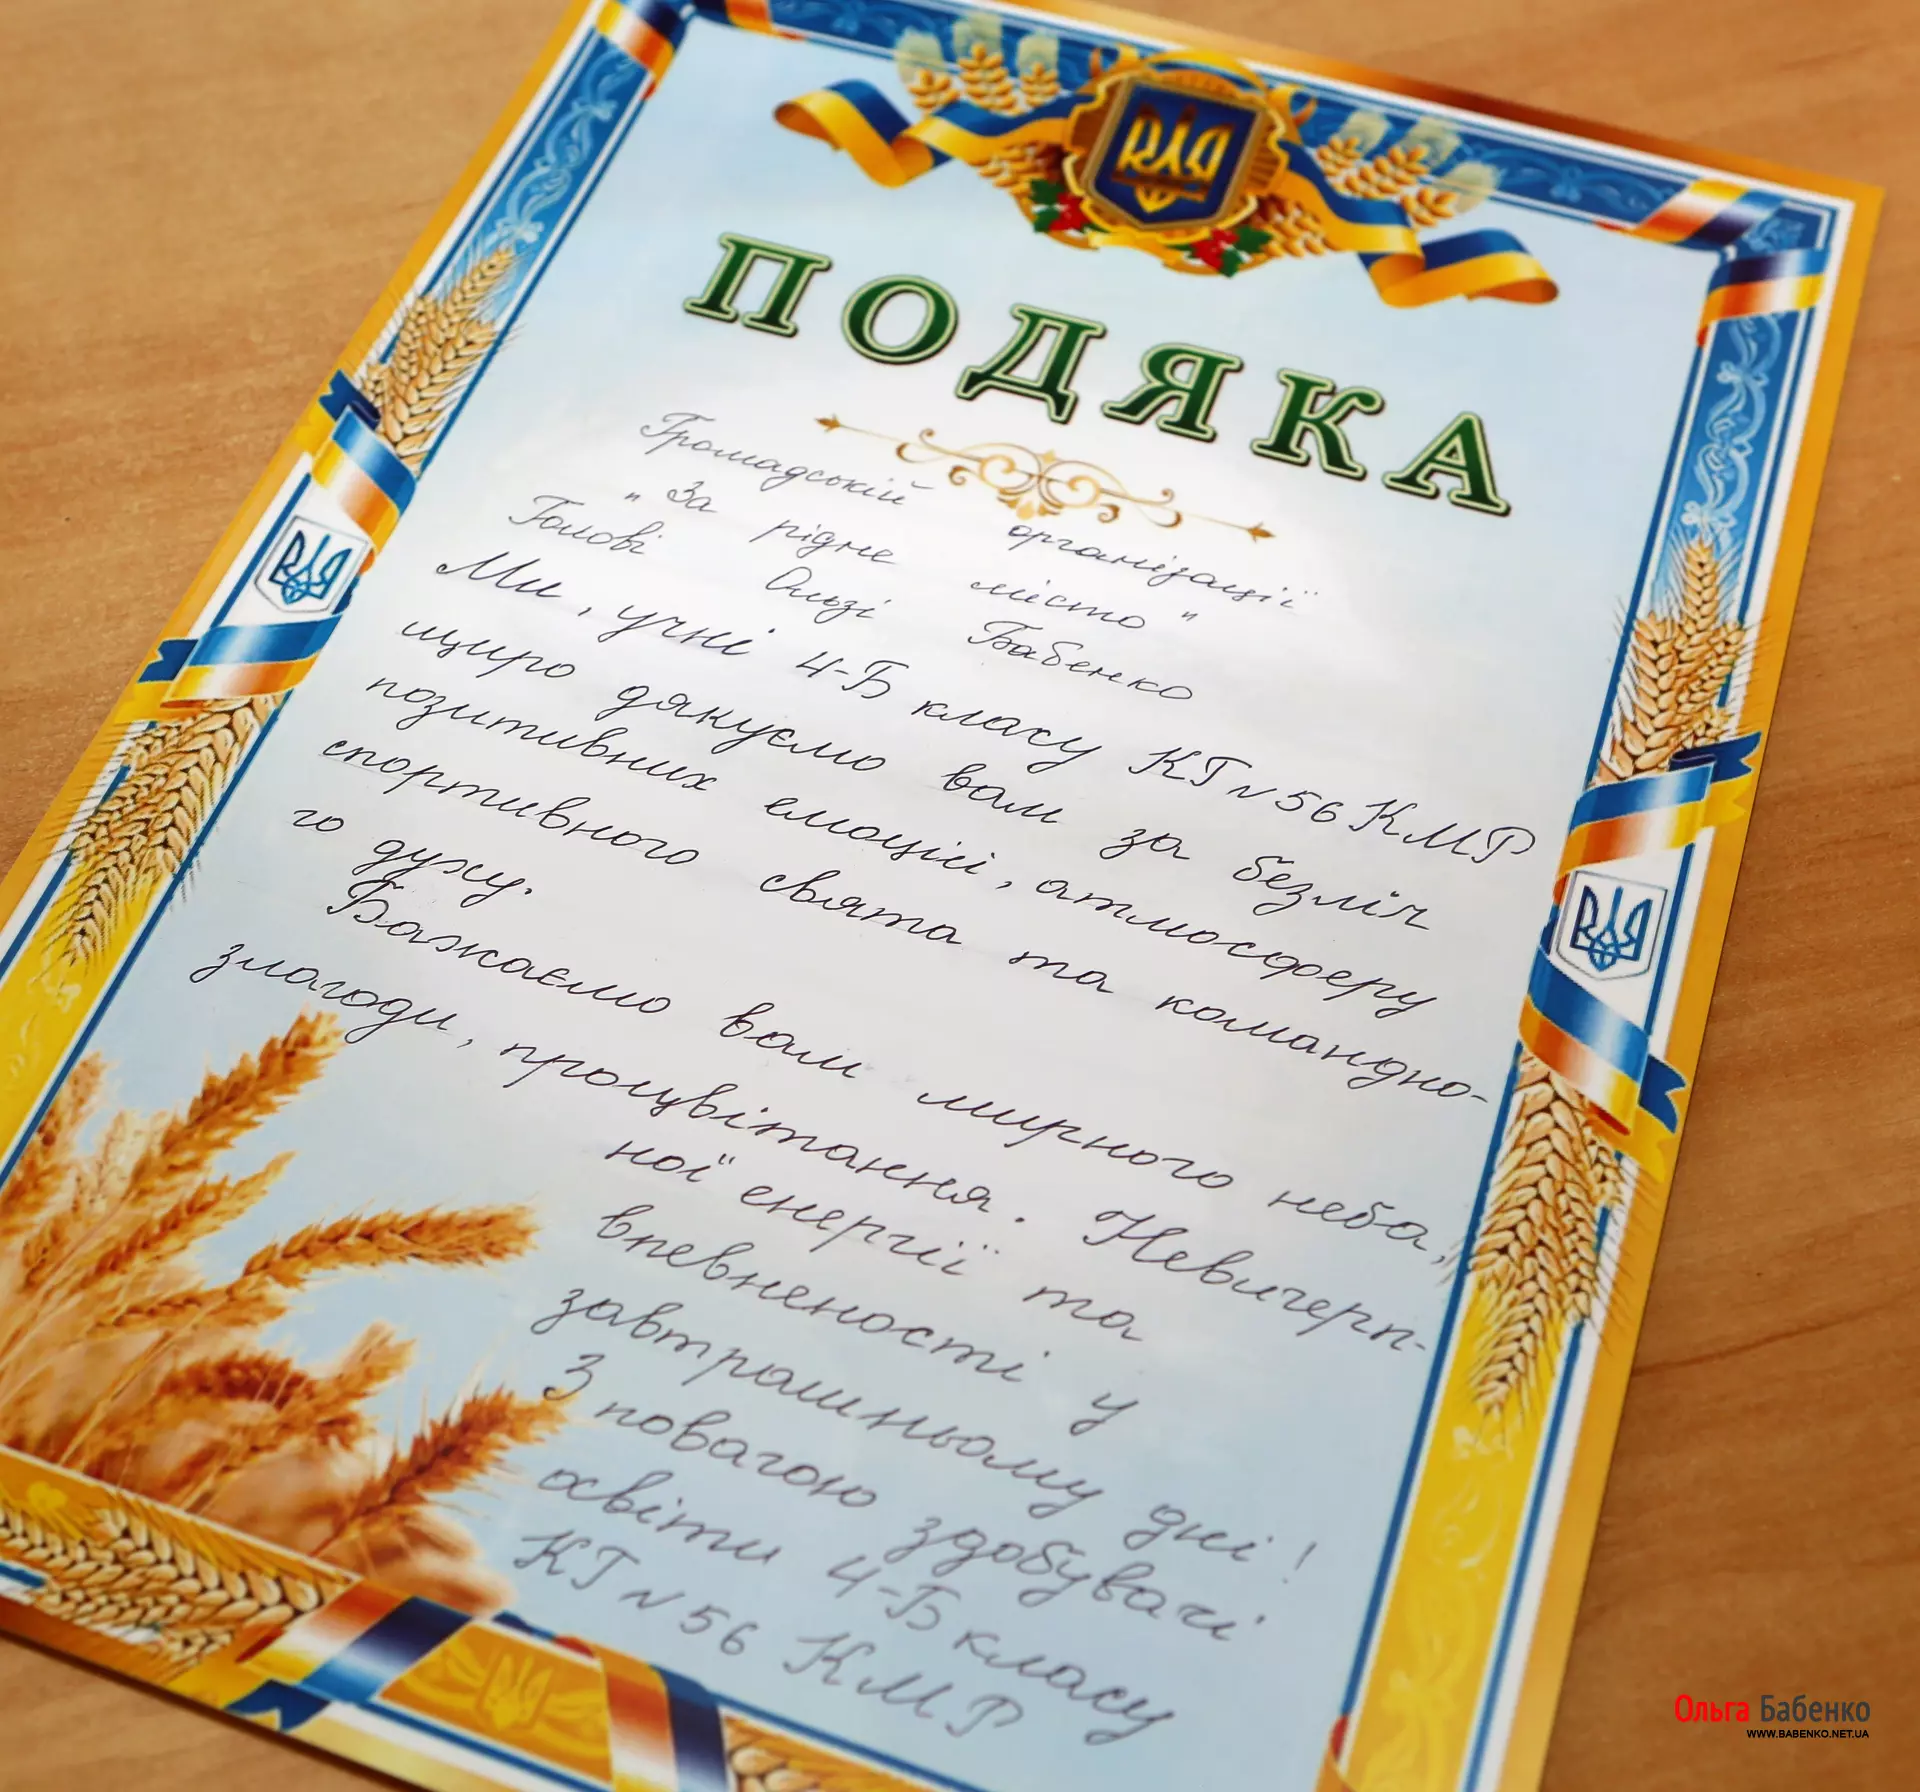 ПОДЯКА
Громадській організації
"За рідне місто"
Голові Ользі Бабенко
Ми, учні 4-Б класу КГ N 56 КМР
щиро дякуємо вам за безліч
позитивних емоцій, атмосферу
спортивного свята та командно-
го духу.
Бажаємо вам мирного неба,
злагоди, процвітання. Невичерп-
ної енергії та
впевнености у
завтрашньому дні!
З повагою здобувачі
освіти 4-Б класу
КГ N 56 КМР
Ольга Бабенко
WWW.BABENKO.NET.UA